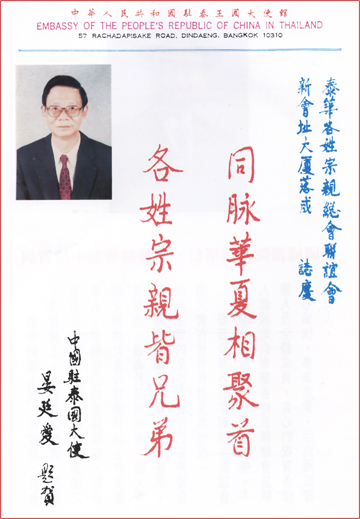 中華人民共和國駐泰王國大使館
EMBASSY OF THE PEOPLE'S REPUBLIC OF CHINA IN THAILAND
57 RACHADAPISAKE ROAD, DINDAENG, BANGKOK 10310
泰華各姓宗親總會聯誼會
新會址大厦落成 誌慶
同脈華夏相聚首
各姓宗親皆兄弟
中國駐泰國大使
晏廷愛 題賀